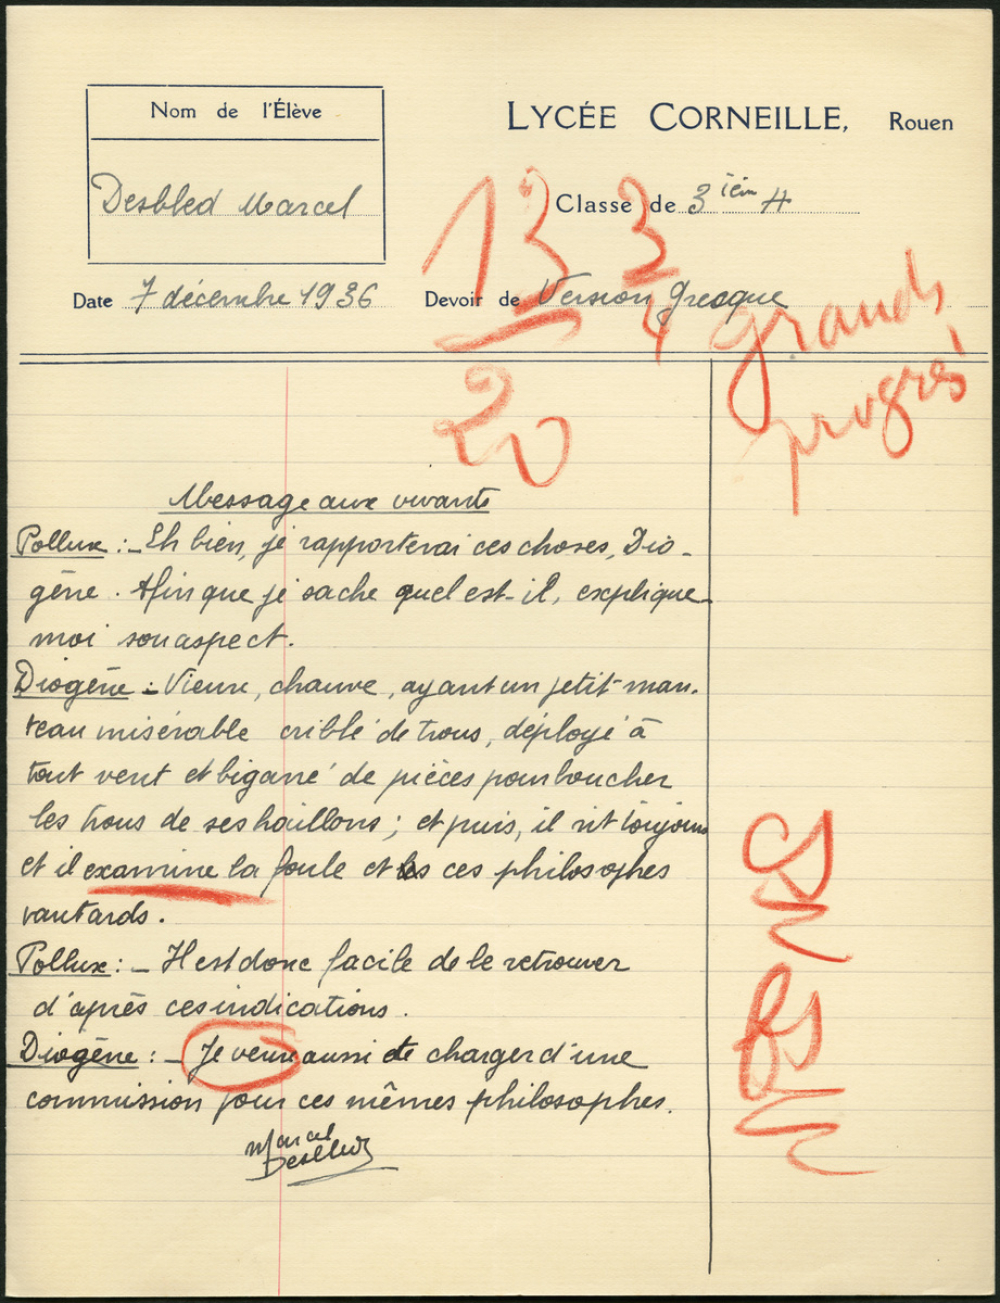 Nom de l'Élève
LYCÉE CORNEILLE, Rouen
Desbled Marcel
Classe de 3ièm A
Date 7 décembre 1936
Devoir de Version Grecque
13 3/4
20
grands
progrès
Message aux vivants
Pollux : _ Eh bien, je rapporterai ces choses, Dio-
gène. Afin que je sache quel est-il, explique-
moi son aspect.
Diogène : Vieux, chauve, ayant un petit man-
teau misérable criblé de trous, déployé à
tout vent et bigarré de pièces pour boucher
les trous de ses haillons ; et puis, il rit toujours
et il examine la foule et ces philosophes
vantards.
Pollux : _ Il est donc facile de le retrouver
d'après ces indications.
Diogène : _ Je veux aussi te charger d'une
commission pour ces mêmes philosophes.
Marcel
Desbled